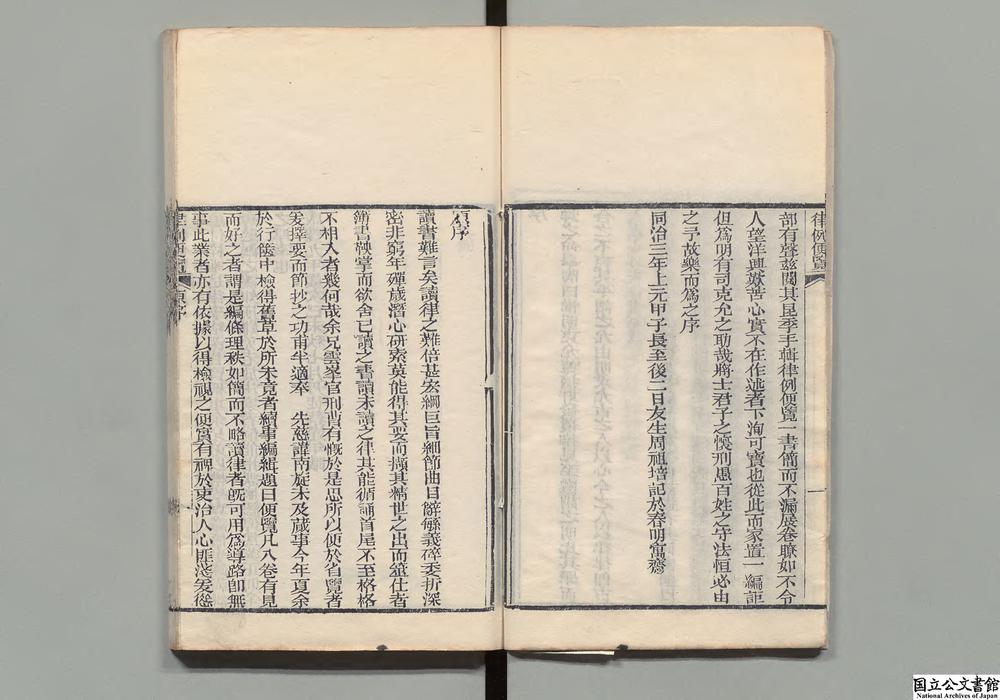 律例便覽
部有聲茲閱其昆季手輯律例便覽一書簡而不漏展卷瞭如不令
人望洋興歎苦心實不在作述者下洵可寶也從此而家置一編詎
但為明有司克允之助哉將士君子之懷刑愚百姓之守法恒必由
之予故樂而為之序
同治三年上元甲子長至後二日友生周祖培記於春明寓齋
原序
讀書難言矣讀律之難倍甚宏綱巨旨細節曲目辭繇義碎委折深
密非窮年殫歲潛心研索莫能得其要而擷其精世之出而筮仕者
簿書鞅掌而欲舍已讀之書讀未讀之律其能循誦首尾不至格格
不相入者幾何哉余兄雲峯官刑曹有慨於是思所以便於省覽者
爰擇要而節抄之功甫半適奉 先慈諱南旋未及蕆事今年夏余
於行篋中檢得舊草於所未竟者續事編緝題曰便覽凡八卷有見
而好之者謂是編條理秩如簡而不略讀律者既可用為導路卽無
事此業者亦有依據以得檢視之便實有裨於吏治人心匪淺爰慫
律例便覽 原序
国立公文書館
National Archives of Japan